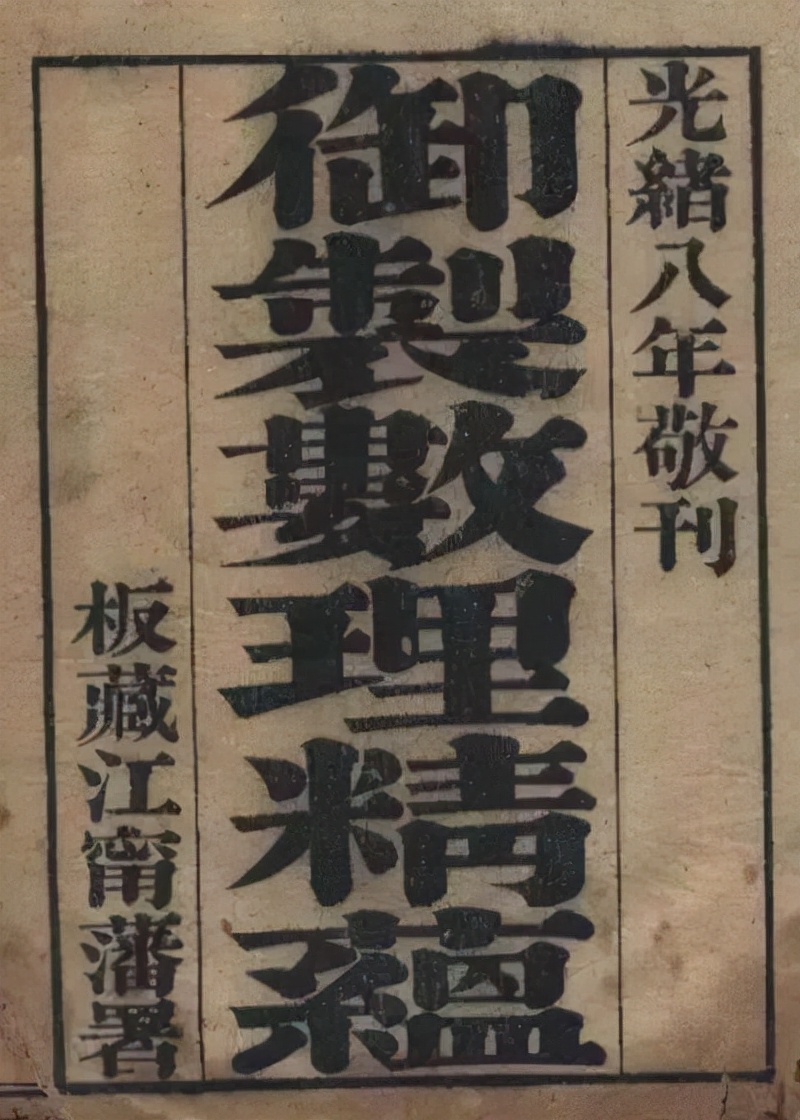 光緒八年敬刊
御製數理精縕
板藏江甯藩署